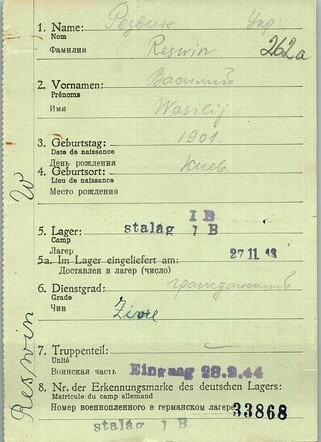 1. Name: Резвин Укр.
Nom
Фамилия Reswin 262a
2. Vornamen: Василий
Prénoms
Имя Wasilij
3. Geburtstag: 1901.
Date de naissance
День рождения
4. Geburtsort: Киев.
Lieu de naissance
Место рождения
I B
5. Lager: stalag I B
Camp
Лагерь 27 11 43
5a. Im Lager eingeliefert am:
Доставлен в лагерь (число)
6. Dienstgrad: гражданский
Grade
Чин Zivil
7. Truppenteil:
Unité
Воинская часть Eingang 28.2.44
8. Nr. der Erkennungsmarke des deutschen Lagers:
Matricule du camp allemand
Номер военнопленного в германском лагере 33868
stalag I B
Reswin W